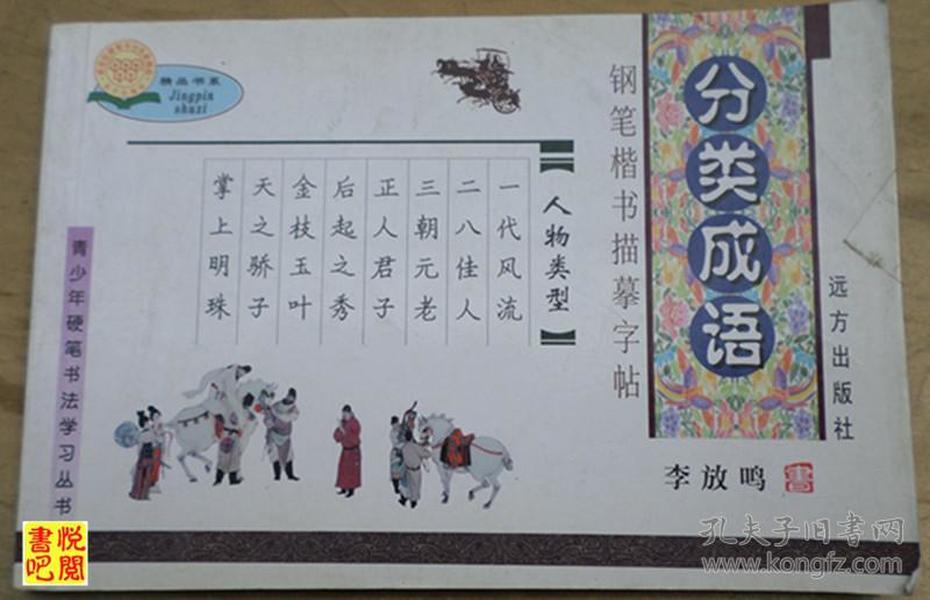 分类成语
钢笔楷书描摹字帖
远方出版社
李放鸣 書
精品书系
Jingpin
shuxi
人物类型
一代风流
二八佳人
三朝元老
正人君子
后起之秀
金枝玉叶
天之骄子
掌上明珠
青少年硬笔书法学习丛书
悦閲
書吧
孔夫子旧书网
www.kongfz.com